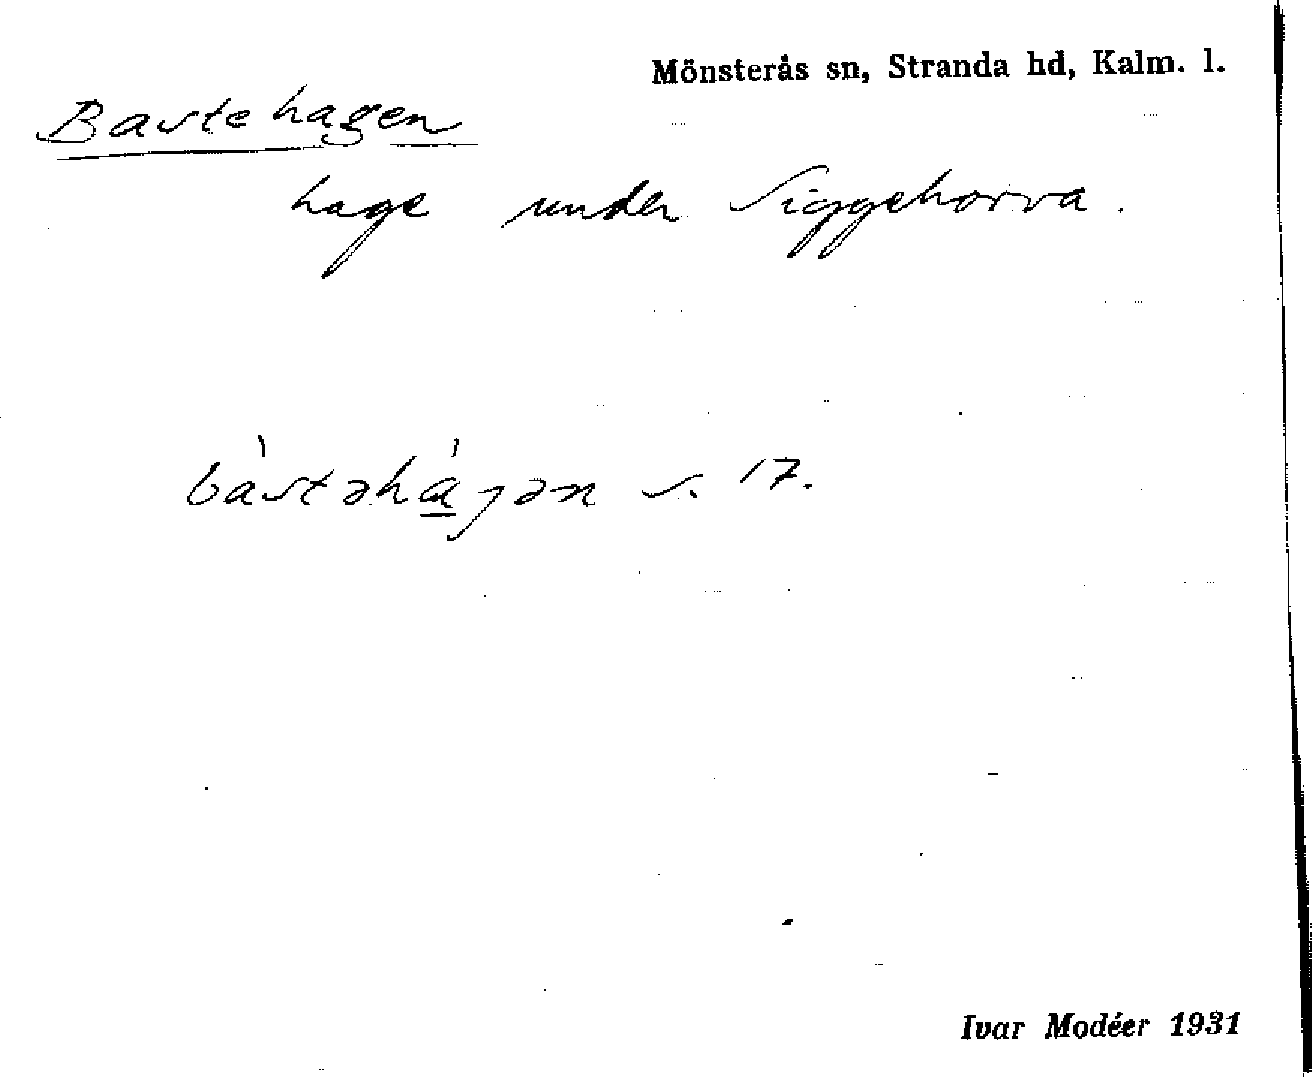 Mönsterås sn, Stranda hd, Kalm. l.
Bastehagen
hage under Siggehorva.
bàstəhàgən s. 17.
Ivar Modéer 1931